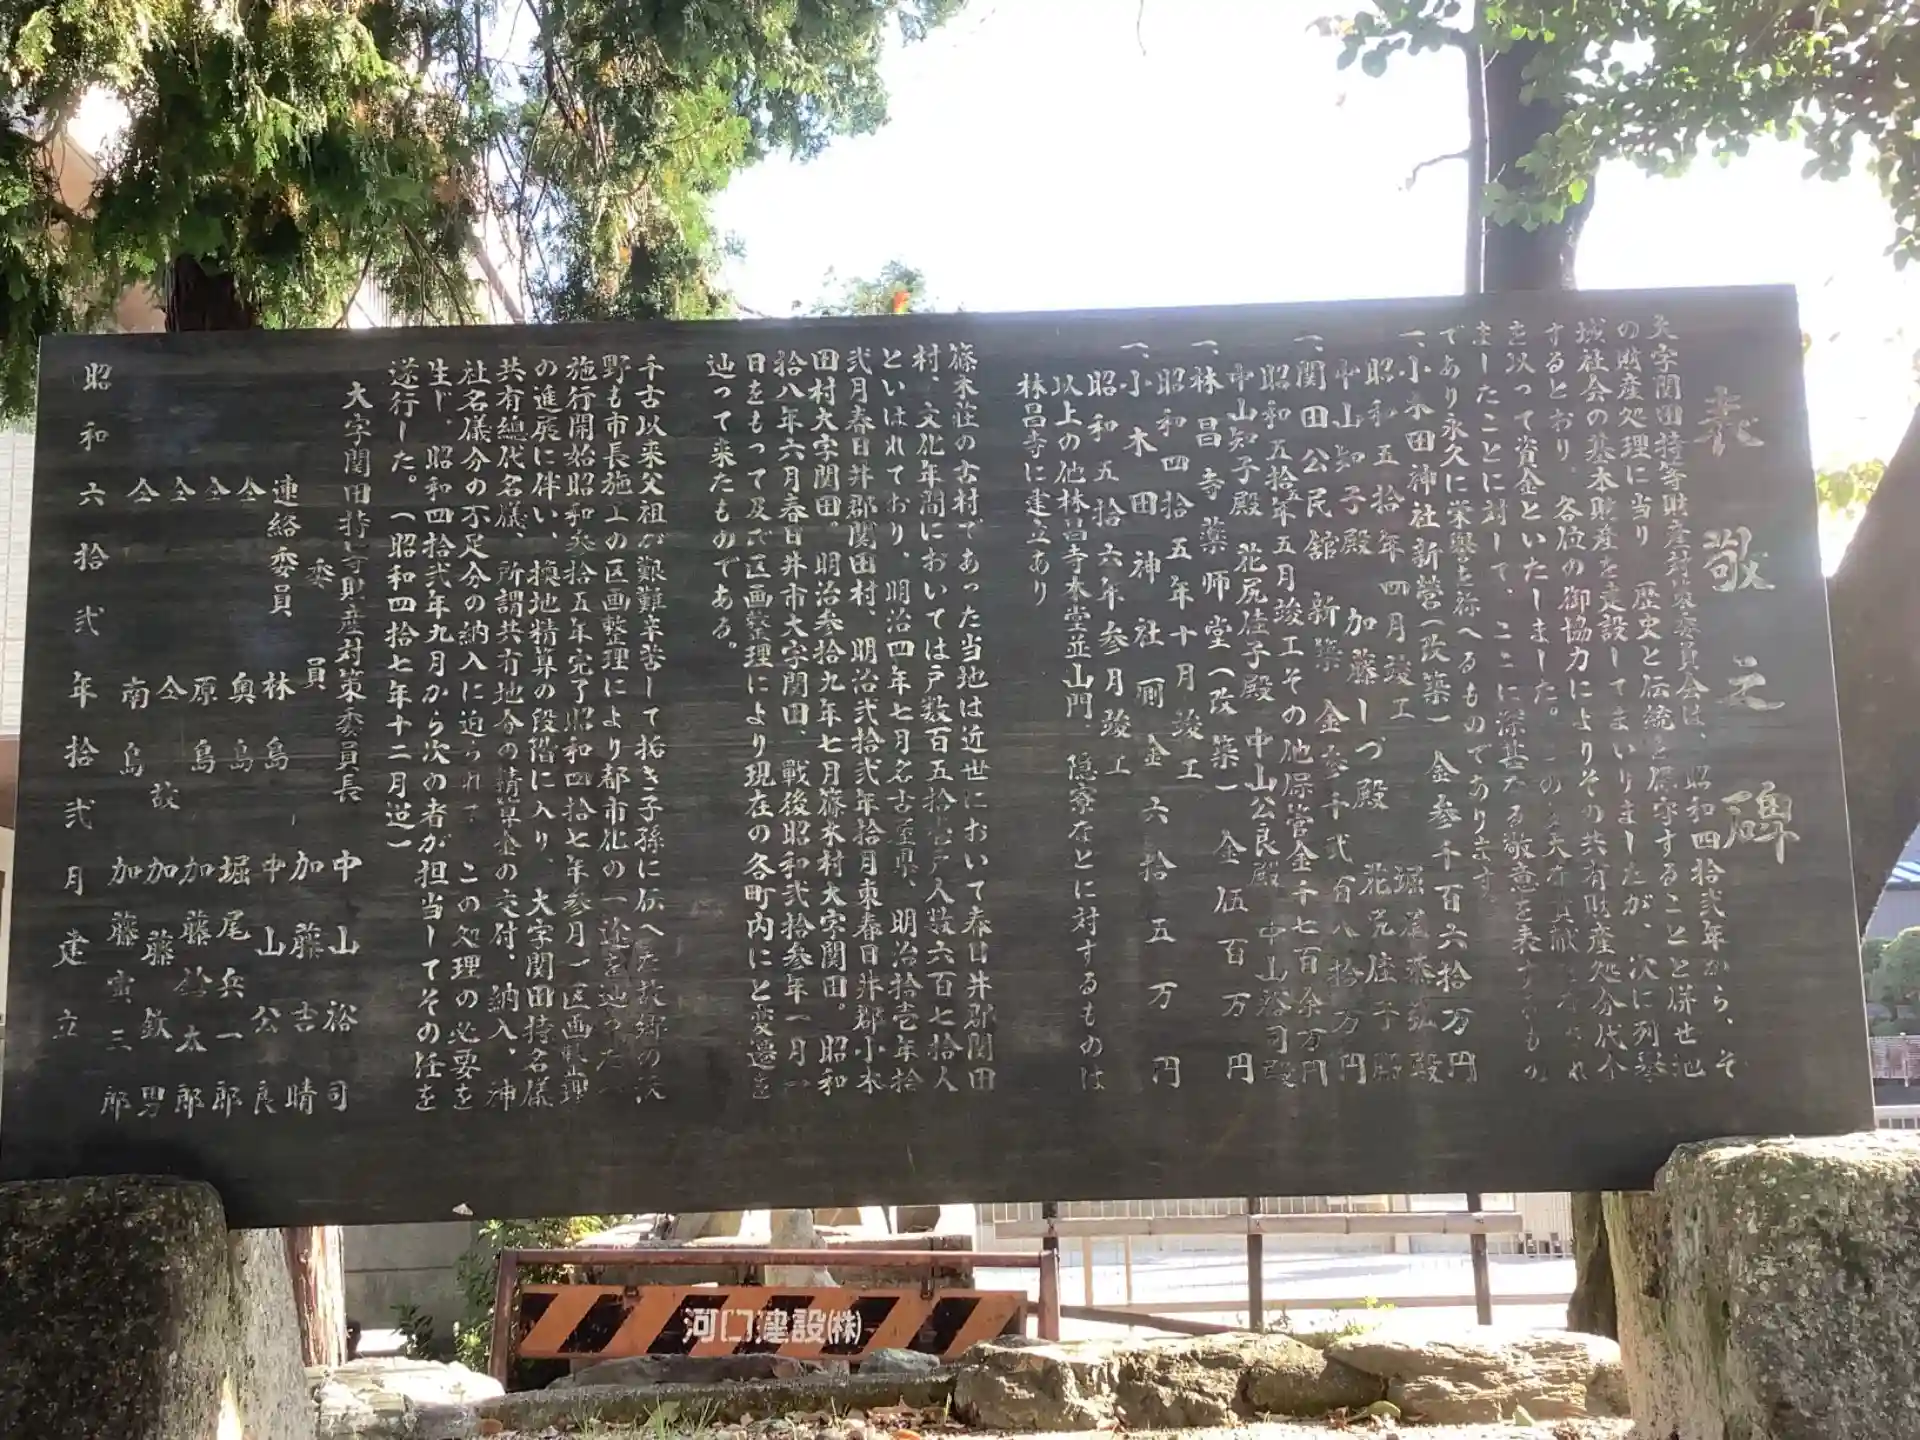 表敬之碑
大字関田持等財産対策委員会は、昭和四拾弐年から、そ
の財産処理に当り 歴史と伝統を保守することと併せ地
域社会の基本財産を建設してまいりましたが、次に列挙
するとおり、各位の御協力によりその共有財産処分代金
を以って資金といたしました。この 大な貢献をなされ
ましたことに対して、ここに深甚なる敬意を表するもの
であり永久に栄誉を称へるものであります。
一、小木田神社新営(改築) 金参千百六拾万円
昭和五拾年四月竣工 堀尾 殿
中山知子殿 加藤しづ殿 花尻佳子殿
一、関田公民館 新築 金参千弐百八拾万円
昭和五拾年五月竣工その他保管金千七百余万円
中山知子殿 花尻佳子殿 中山公良殿 中山裕司殿
一、林昌寺薬師堂(改築) 金伍百万円
昭和四拾五年十月竣工
一、小木田神社 厠 金六拾五万円
昭和五拾六年参月竣工
以上の他林昌寺本堂並山門、隠寮などに対するものは
林昌寺に建立あり
篠木荘の古村であった当地は近世において春日井郡関田
村、文化年間においては戸数百五拾 戸人数六百七拾人
といはれており、明治四年七月名古屋県、明治拾壱年拾
弐月春日井郡関田村、明治弐拾弐年拾月東春日井郡小木
田村大字関田。明治参拾九年七月篠木村大字関田。昭和
拾八年六月春日井市大字関田、戦後昭和弐拾参年一月一
日をもって及び区画整理により現在の各町内にと変遷を
辿って来たものである。
千古以来父祖が艱難辛苦して拓き子孫に伝へた故郷の沃
野も市長施工の区画整理により都市化の一途を辿った(
施行開始昭和参拾五年完了昭和四拾七年参月)区画整理
の進展に伴い、換地精算の段階に入り、大字関田持名儀
共有總代名儀、所謂共有地分の精算金の交付、納入、神
社名儀分の不足分の納入に迫られて この処理の必要を
生じ、昭和四拾弐年九月から次の者が担当してその任を
遂行した。(昭和四拾七年十二月迄)
大字関田持等財産対策委員長 中山裕司
委員 加藤吉晴
連絡委員 林島 中山公良
仝 奥島 堀尾兵一郎
仝 原島 加藤 太郎
仝 仝 故 加藤欽男
仝 南島 加藤寅三郎
昭和六拾弐年拾弐月建立
河口建設(株)